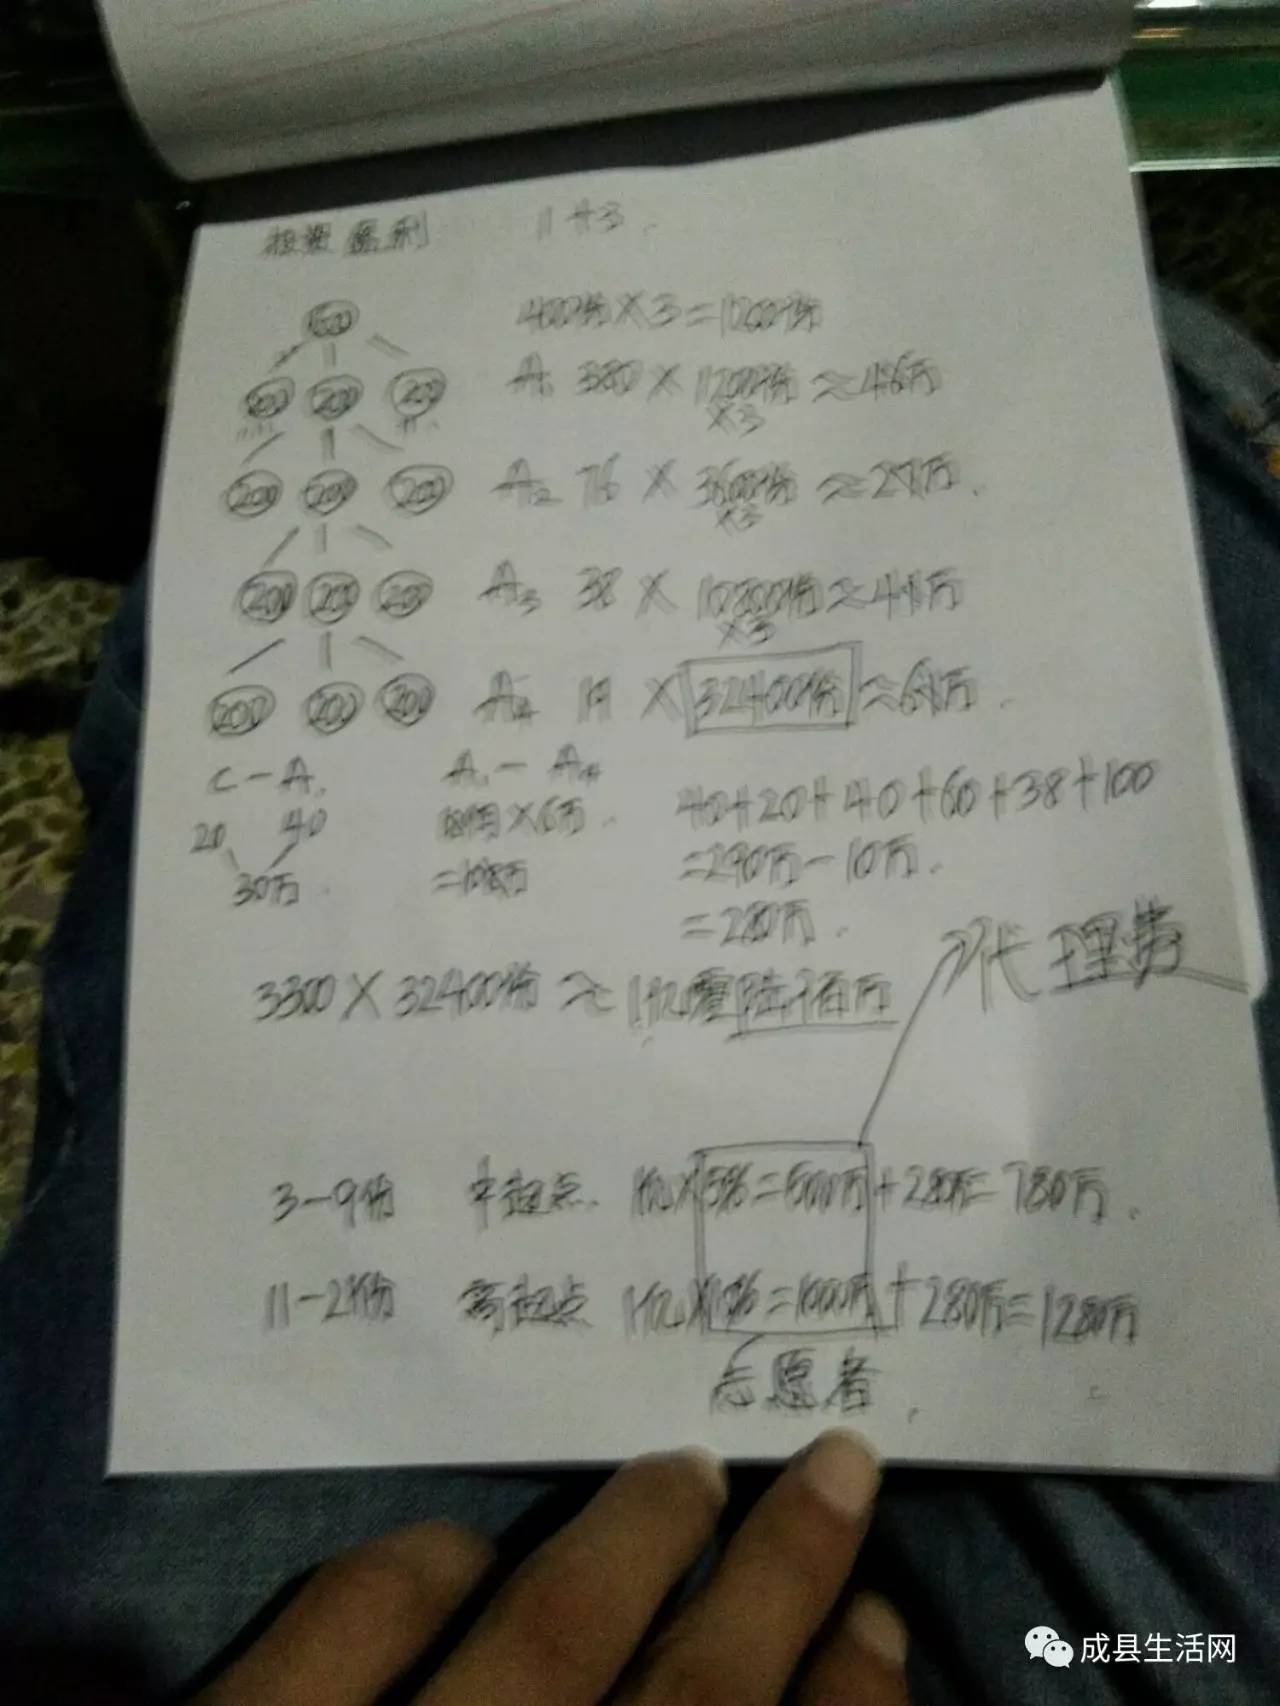 投资盈利 11+3.
600
400份×3=1200份
200 200 200
A₁ 380×1200份≈46万
×3
200 200 200
A₂ 76×3600份≈27万.
×3
200 200 200
A₃ 38×10800份≈41万
×3
200 200 200
A₄ 19×32400份≈61万.
C-A₁
A₁-A₄
20 40
30万.
18个月×6万.
=108万
40+20+40+60+38+100
=290万-10万.
=280万.
代理费
3300×32400份≈1亿零陆佰万
3-9份 中起点. 1亿×5%=500万+280万=780万.
11-21份 高起点 1亿×10%=1000万+280万=1280万
志愿者.
成县生活网